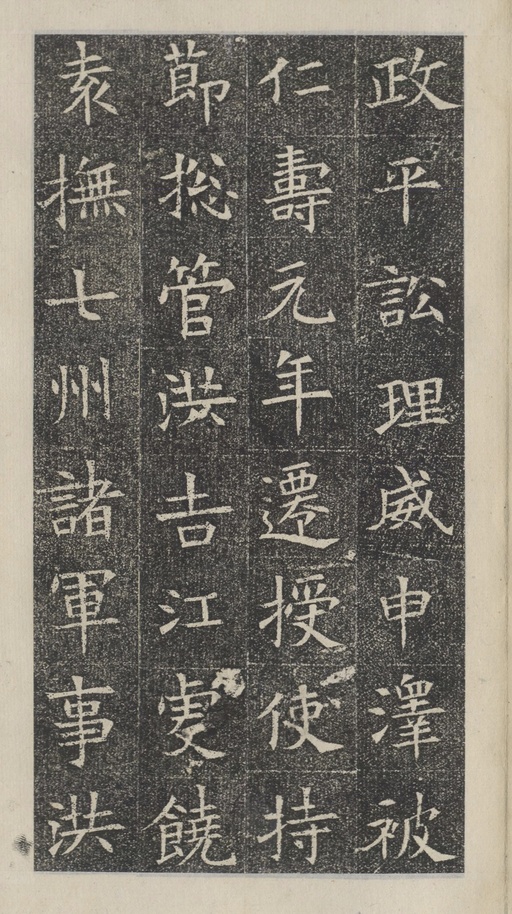 政平訟理威申澤被
仁壽元年遷授使持
節揔管洪吉江虔饒
袁撫七州諸軍事洪